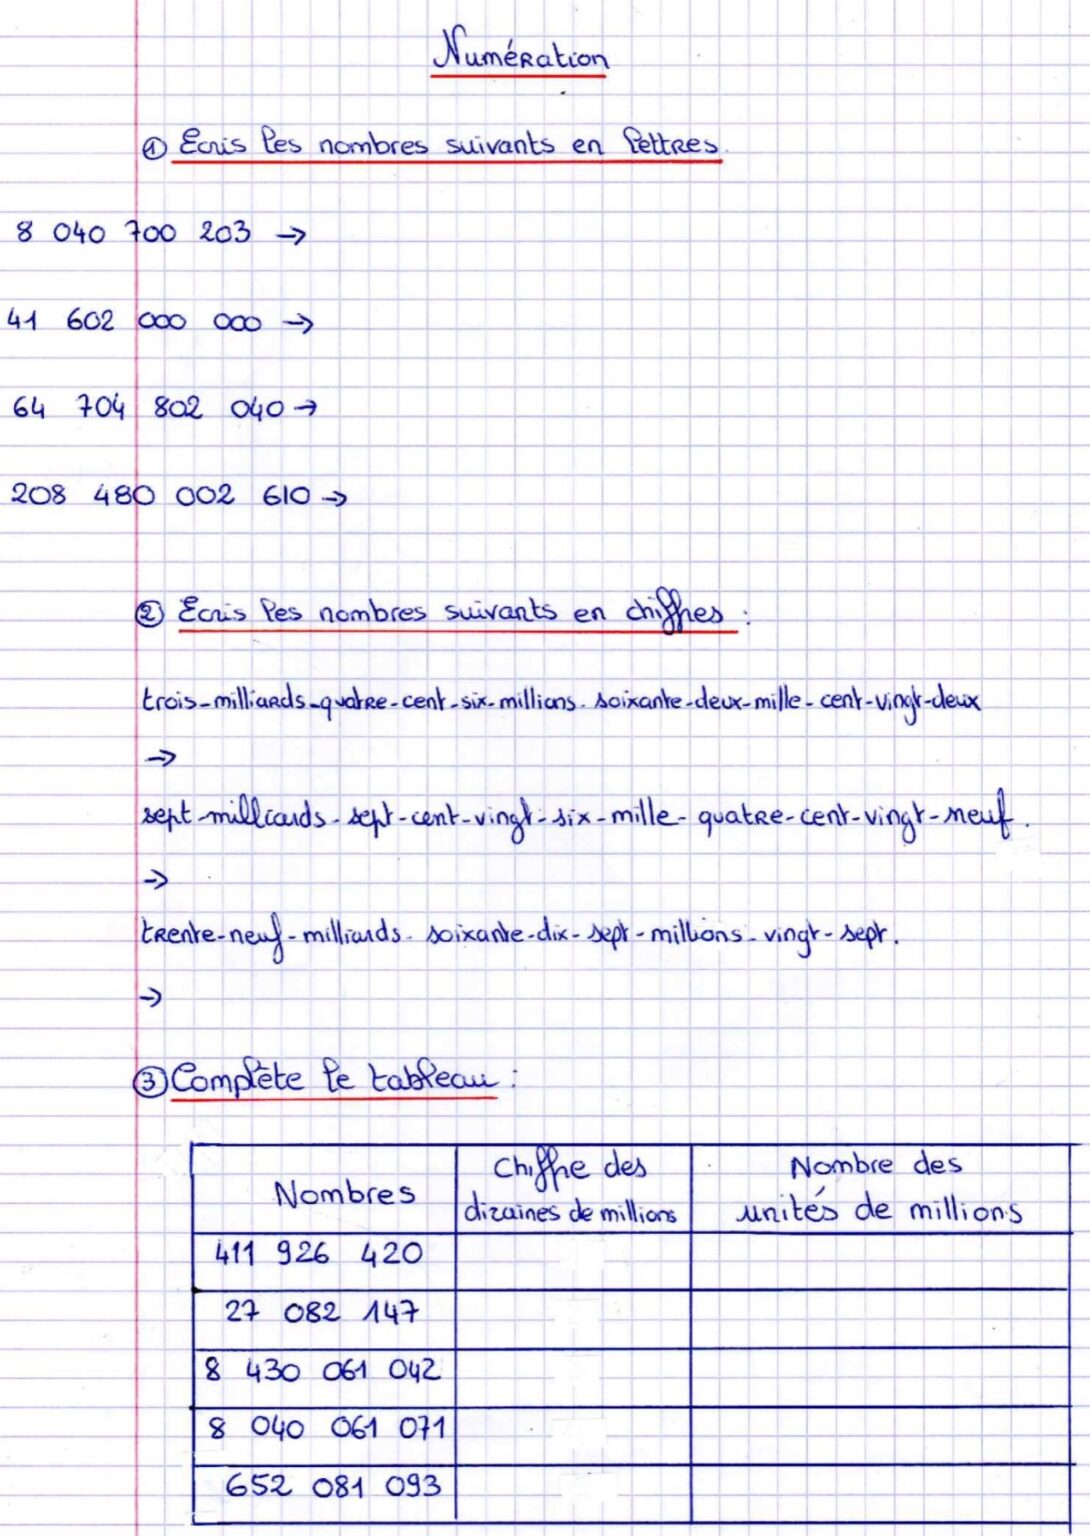 Numération
① Ecris les nombres suivants en lettres.
8 040 700 203 →
41 602 000 000 →
64 704 802 040 →
208 480 002 610 →
② Ecris les nombres suivants en chiffres :
trois-milliards-quatre-cent-six-millions-soixante-deux-mille-cent-vingt-deux
→
sept-milliards-sept-cent-vingt-six-mille-quatre-cent-vingt-neuf.
→
trente-neuf-milliards-soixante-dix-sept-millions-vingt-sept.
→
③ Complète le tableau :
Nombres
Chiffre des
dizaines de millions
Nombre des
unités de millions
411 926 420
27 082 147
8 430 061 042
8 040 061 071
652 081 093